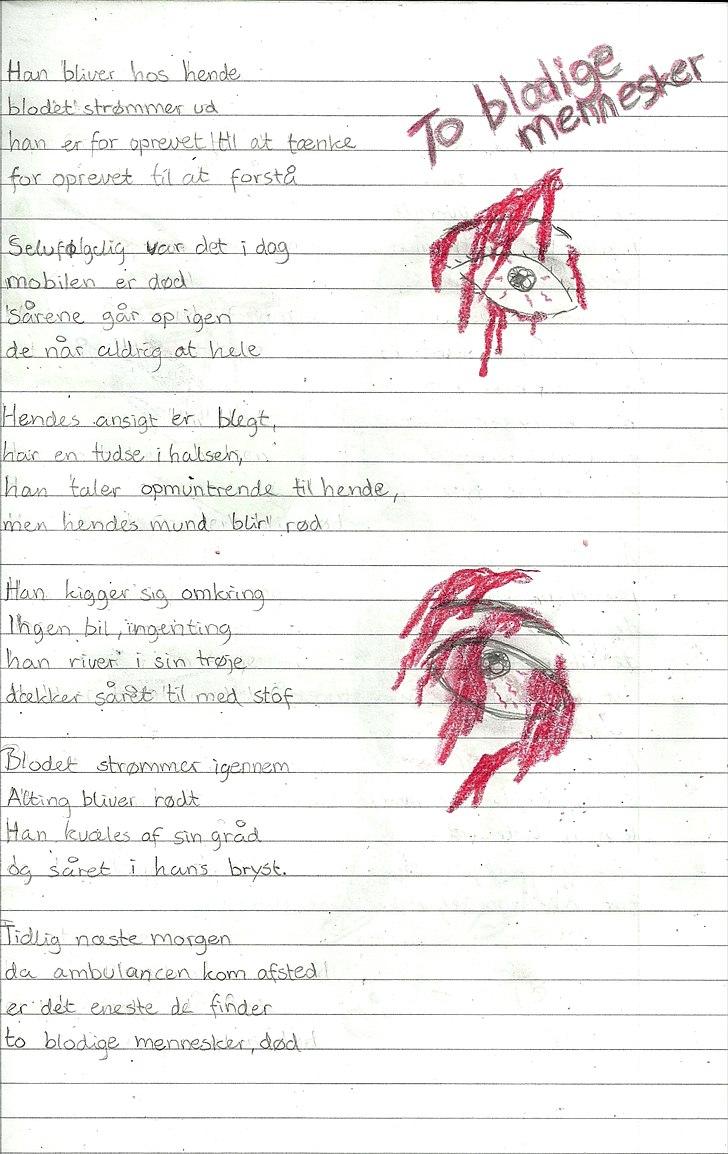 To blodige
mennesker
Han bliver hos hende
blodet strømmer ud
han er for oprevet til at tænke
for oprevet til at forstå
Selvfølgelig var det i dag
mobilen er død
sårene går op igen
de når aldrig at hele
Hendes ansigt er blegt,
har en tudse i halsen,
han taler opmuntrende til hende,
men hendes mund blir' rød
Han kigger sig omkring
Ingen bil, ingenting
han river i sin trøje
dækker såret til med stof
Blodet strømmer igennem
Alting bliver rødt
Han kvæles af sin gråd
og såret i hans bryst.
Tidlig næste morgen
da ambulancen kom afsted
er det eneste de finder
to blodige mennesker, død